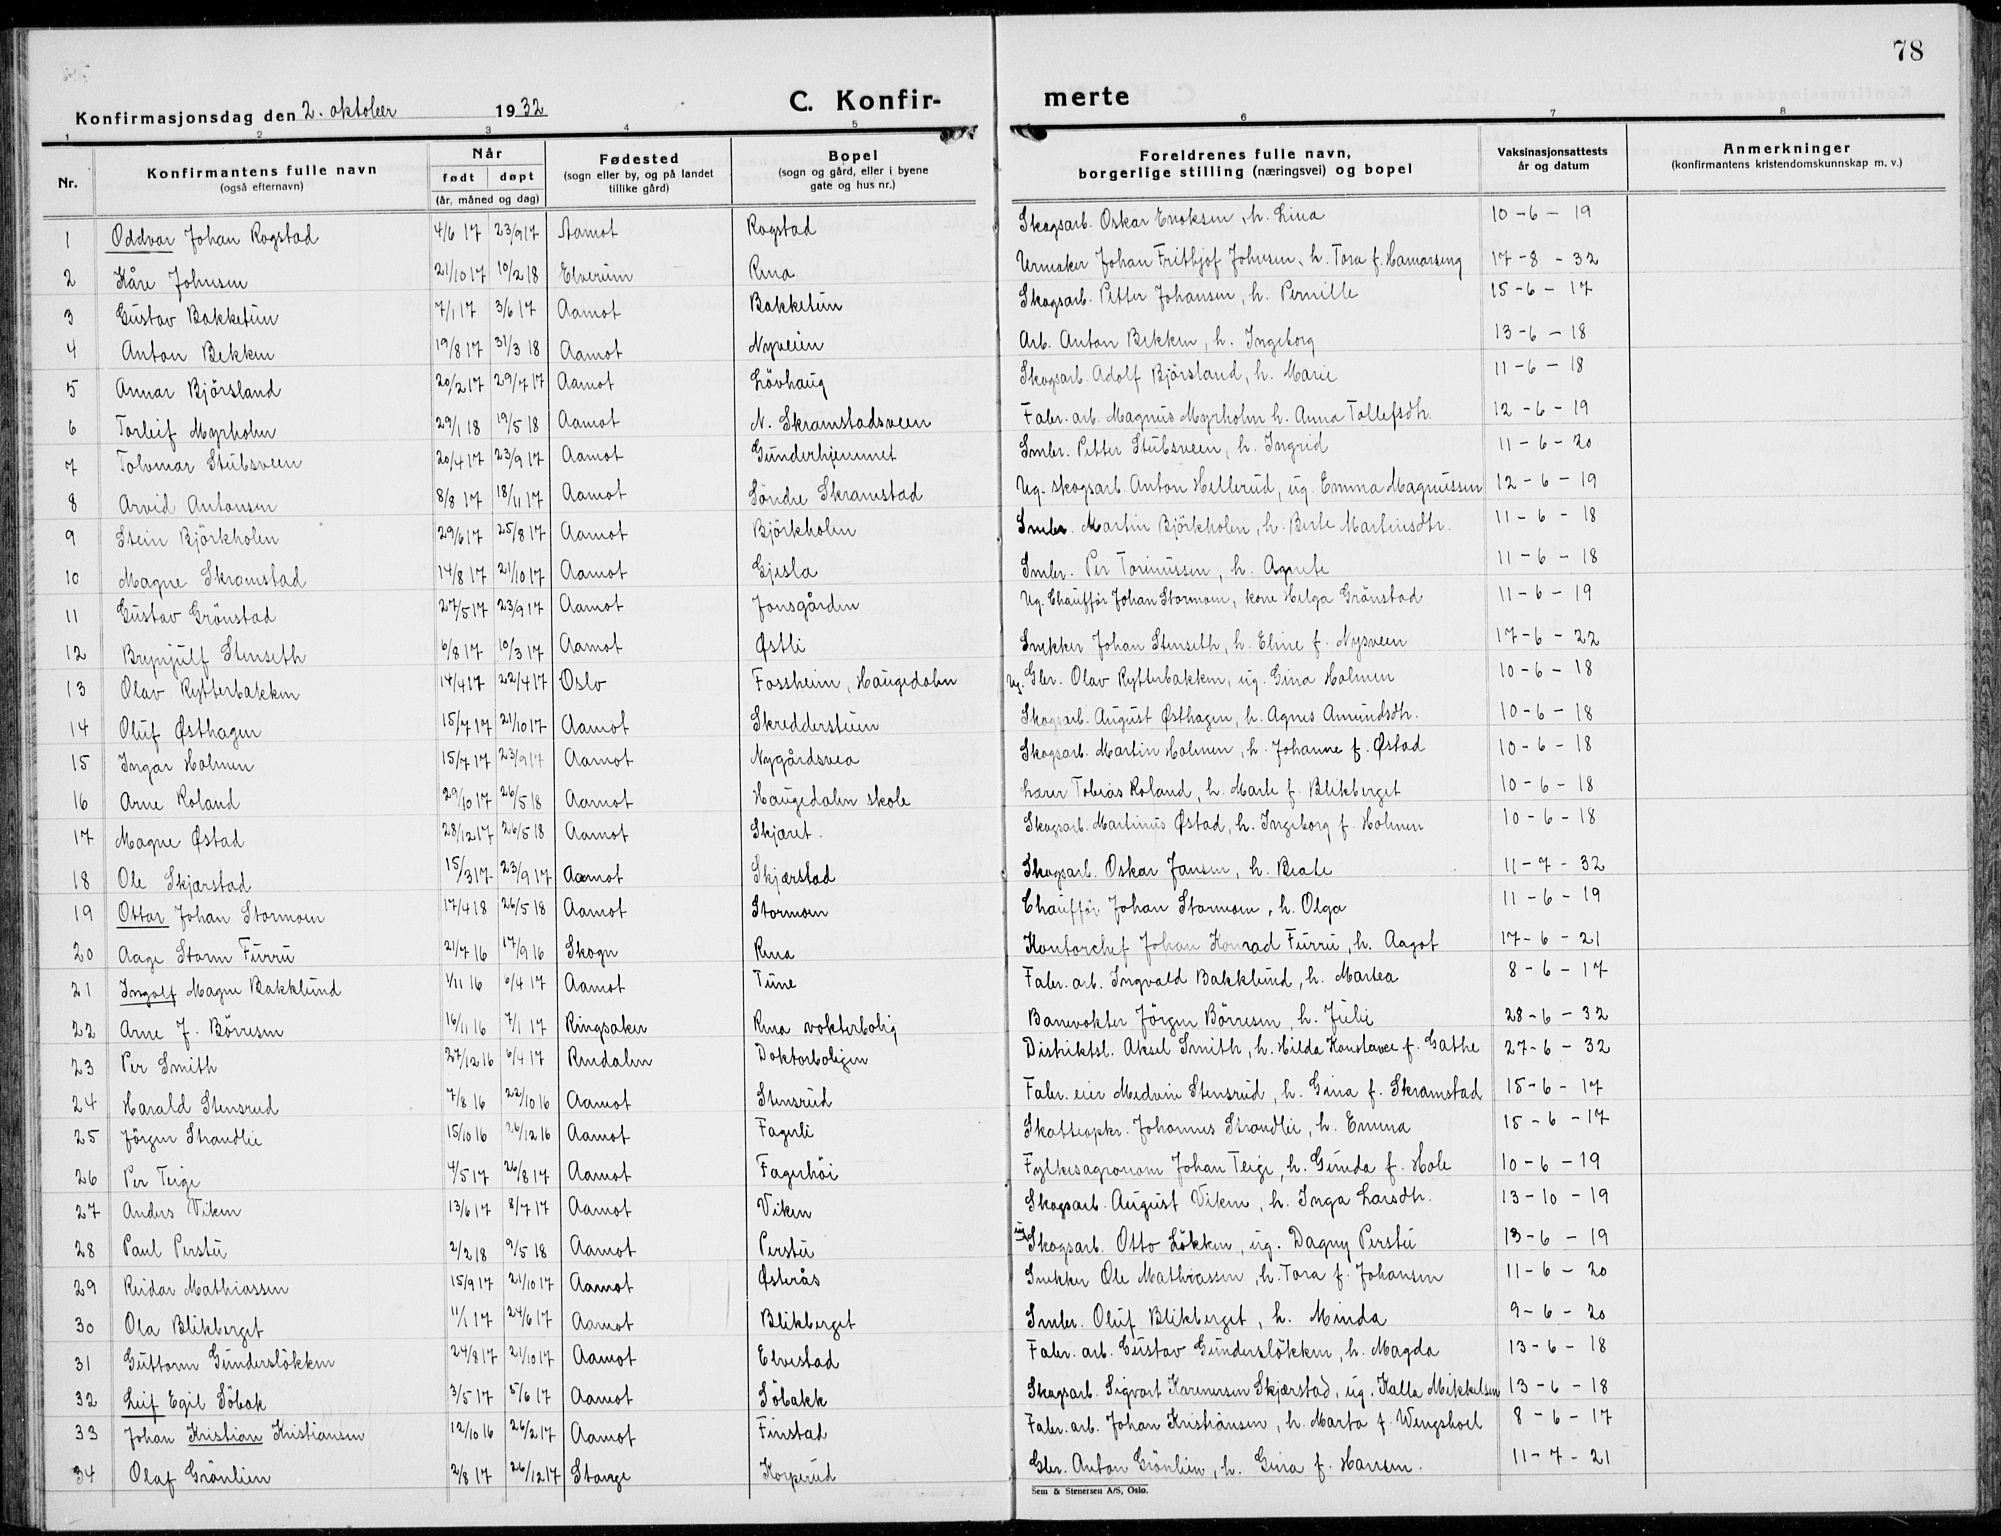 78
Konfirmasjonsdag den 2. oktober 1932 C. Konfirmerte
1 2 3 4 5 6 7 8
Nr. Konfirmantens fulle navn (også efternavn) Når født døpt (år, måned og dag) Fødested (sogn eller by, og på landet tillike gård) Bopel (sogn og gård, eller i byene gate og hus nr.) Foreldrenes fulle navn, borgerlige stilling (næringsvei) og bopel Vaksinasjonsattests år og datum Anmerkninger (konfirmantens kristendomskunnskap m. v.)
1 Oddvar Johan Rogstad 4/6 17 23/9 17 Aamot Rogstad Skogsarb. Oskar Enoksen, h. Lina 10-6-19
2 Kåre Johnsen 21/10 17 10/2 18 Elverum Rena Urmaker Johan Frithjof Johnsen, h. Tora f. Hamarseng 17-8-32
3 Gustav Bakketun 7/1 17 3/6 17 Aamot Bakketun Skogsarb. Petter Johansen, h. Pernille 15-6-17
4 Anton Bekken 19/8 17 31/3 18 Aamot Nyveien Arb. Anton Bekken, h. Ingeborg 13-6-18
5 Annar Bjørsland 20/2 17 29/7 17 Aamot Løvhaug Skogsarb. Adolf Bjørsland, h. Marie 11-6-18
6 Torleif Myrholm 29/1 18 19/5 18 Aamot N. Skramstadsveen Fabr. arb. Magnus Myrholm h. Anna Tollefsdtr. 12-6-19
7 Tolvmar Stubsveen 20/4 17 23/9 17 Aamot Gunderhjemmet Smbr. Petter Stubsveen, h. Ingrid 11-6-20
8 Arvid Antonsen 8/8 17 18/11 17 Aamot Søndre Skramstad Ug. skogsarb. Anton Hellerud, ug. Emma Magnussen 12-6-19
9 Stein Björkholen 29/6 17 25/8 17 Aamot Björkholen Smbr. Martin Björkholen, h. Berte Martinsdtr. 11-6-18
10 Magne Skramstad 14/8 17 21/10 17 Aamot Gjesla Smbr. Per Torinussen, h. Agnete 11-6-18
11 Gustav Grönstad 27/5 17 23/9 17 Aamot Jonsgården Ug. Chauffør Johan Stormoen, kone Helga Grönstad 11-6-19
12 Brynjulf Stenseth 6/8 17 10/3 17 Aamot Østli Snekker Johan Stenseth, h. Eline f. Nysveen 17-6-22
13 Olav Rytterbakken 14/4 17 22/4 17 Oslo Fossheim, Haugedalen Ug. Gbr. Olav Rytterbakken, ug. Gina Holmen 10-6-18
14 Oluf Østhagen 15/7 17 21/10 17 Aamot Skreddersteien Skogsarb. August Østhagen, h. Agnes Amundsdtr. 10-6-18
15 Ingar Holmen 15/7 17 23/9 17 Aamot Nygårdsvea Skogsarb. Martin Holmen, h. Johanne f. Østad 10-6-18
16 Arne Roland 29/10 17 26/5 18 Aamot Haugedalen skole Lærer Tobias Roland, h. Marte f. Blikberget 10-6-18
17 Magne Østad 28/12 17 26/5 18 Aamot Skjæret. Skogsarb. Martinus Østad, h. Ingeborg f. Holmen 10-6-18
18 Ole Skjærstad 15/3 17 23/9 17 Aamot Skjærstad Skogsarb. Oskar Jansen, h. Beate 11-7-32
19 Ottar Johan Stormoen 17/4 18 26/5 18 Aamot Stormoen Chauffør Johan Stormoen, h. Olga 11-6-19
20 Aage Storm Furru 21/7 16 17/9 16 Skogn Rena Kontorchef Johan Konrad Furru, h. Aagot 17-6-21
21 Ingolf Magne Bakklund 1/11 16 6/4 17 Aamot Tune Fabr. arb. Ingvald Bakklund, h. Martea 8-6-17
22 Arne J. Börresen 16/11 16 7/1 17 Ringsaker Rena vokterbolig Banevokter Jörgen Börresen, h. Julie 28-6-32
23 Per Smith 27/12 16 6/4 17 Rendalen Doktorboligen Distriktsl. Aksel Smith, h. Hilda Konstance f. Gathe 27-6-32
24 Harald Stensrud 7/8 16 22/10 16 Aamot Stensrud Fabr. eier Medvin Stensrud, h. Gina f. Skramstad 15-6-17
25 Jörgen Strandlie 15/10 16 26/12 16 Aamot Fagerli Skatteopkr. Johannes Strandlie, h. Emma 15-6-17
26 Per Teige 4/5 17 26/8 17 Aamot Fagerhöi Fylkesagronom Johan Teige, h. Gunda f. Hole 10-6-19
27 Anders Viken 13/6 17 8/7 17 Aamot Viken Skogsarb. August Viken, h. Inga Larsdtr. 13-10-19
28 Paul Perstu 2/2 18 9/5 18 Aamot Perstu ug. Skogsarb. Otto Lökken, ug. Dagny Perstu 13-6-19
29 Reidar Mathiassen 15/9 17 21/10 17 Aamot Østerås Snekker Ole Mathiassen, h. Tora f. Johansen 11-6-20
30 Ola Blikberget 11/1 17 24/6 17 Aamot Blikberget Smbr. Oluf Blikberget, h. Minda 9-6-20
31 Guttorm Gunderslökken 24/8 17 21/10 17 Aamot Elvestad Fabr. arb. Gustav Gunderslökken, h. Magda 13-6-18
32 Leif Egil Söbak 3/5 17 5/6 17 Aamot Söbakk Skogsarb. Sigvart Karenersen Skjærstad, ug. Kalla Mikkelsen 13-6-18
33 Johan Kristian Kristiansen 12/10 16 26/2 17 Aamot Finstad Fabr. arb. Johan Kristiansen, h. Marta f. Wengshoel 8-6-17
34 Olaf Grönlien 2/8 17 26/12 17 Stange Korperud Gbr. Anton Grönlien, h. Gina f. Hansen. 11-7-21
Sem & Stenersen A/S, Oslo.